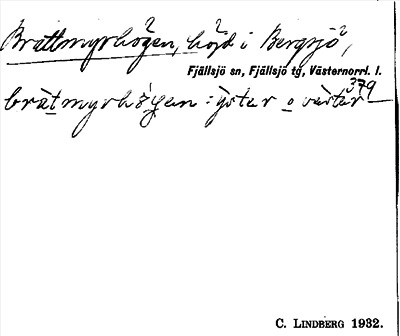 Brattmyrhögen, höjd i Bergsjö,
Fjällsjö sn, Fjällsjö tg, Västernorrl. l.
379
bràtmyrhö̀gen : ÿster o vàster —
C. LINDBERG 1932.